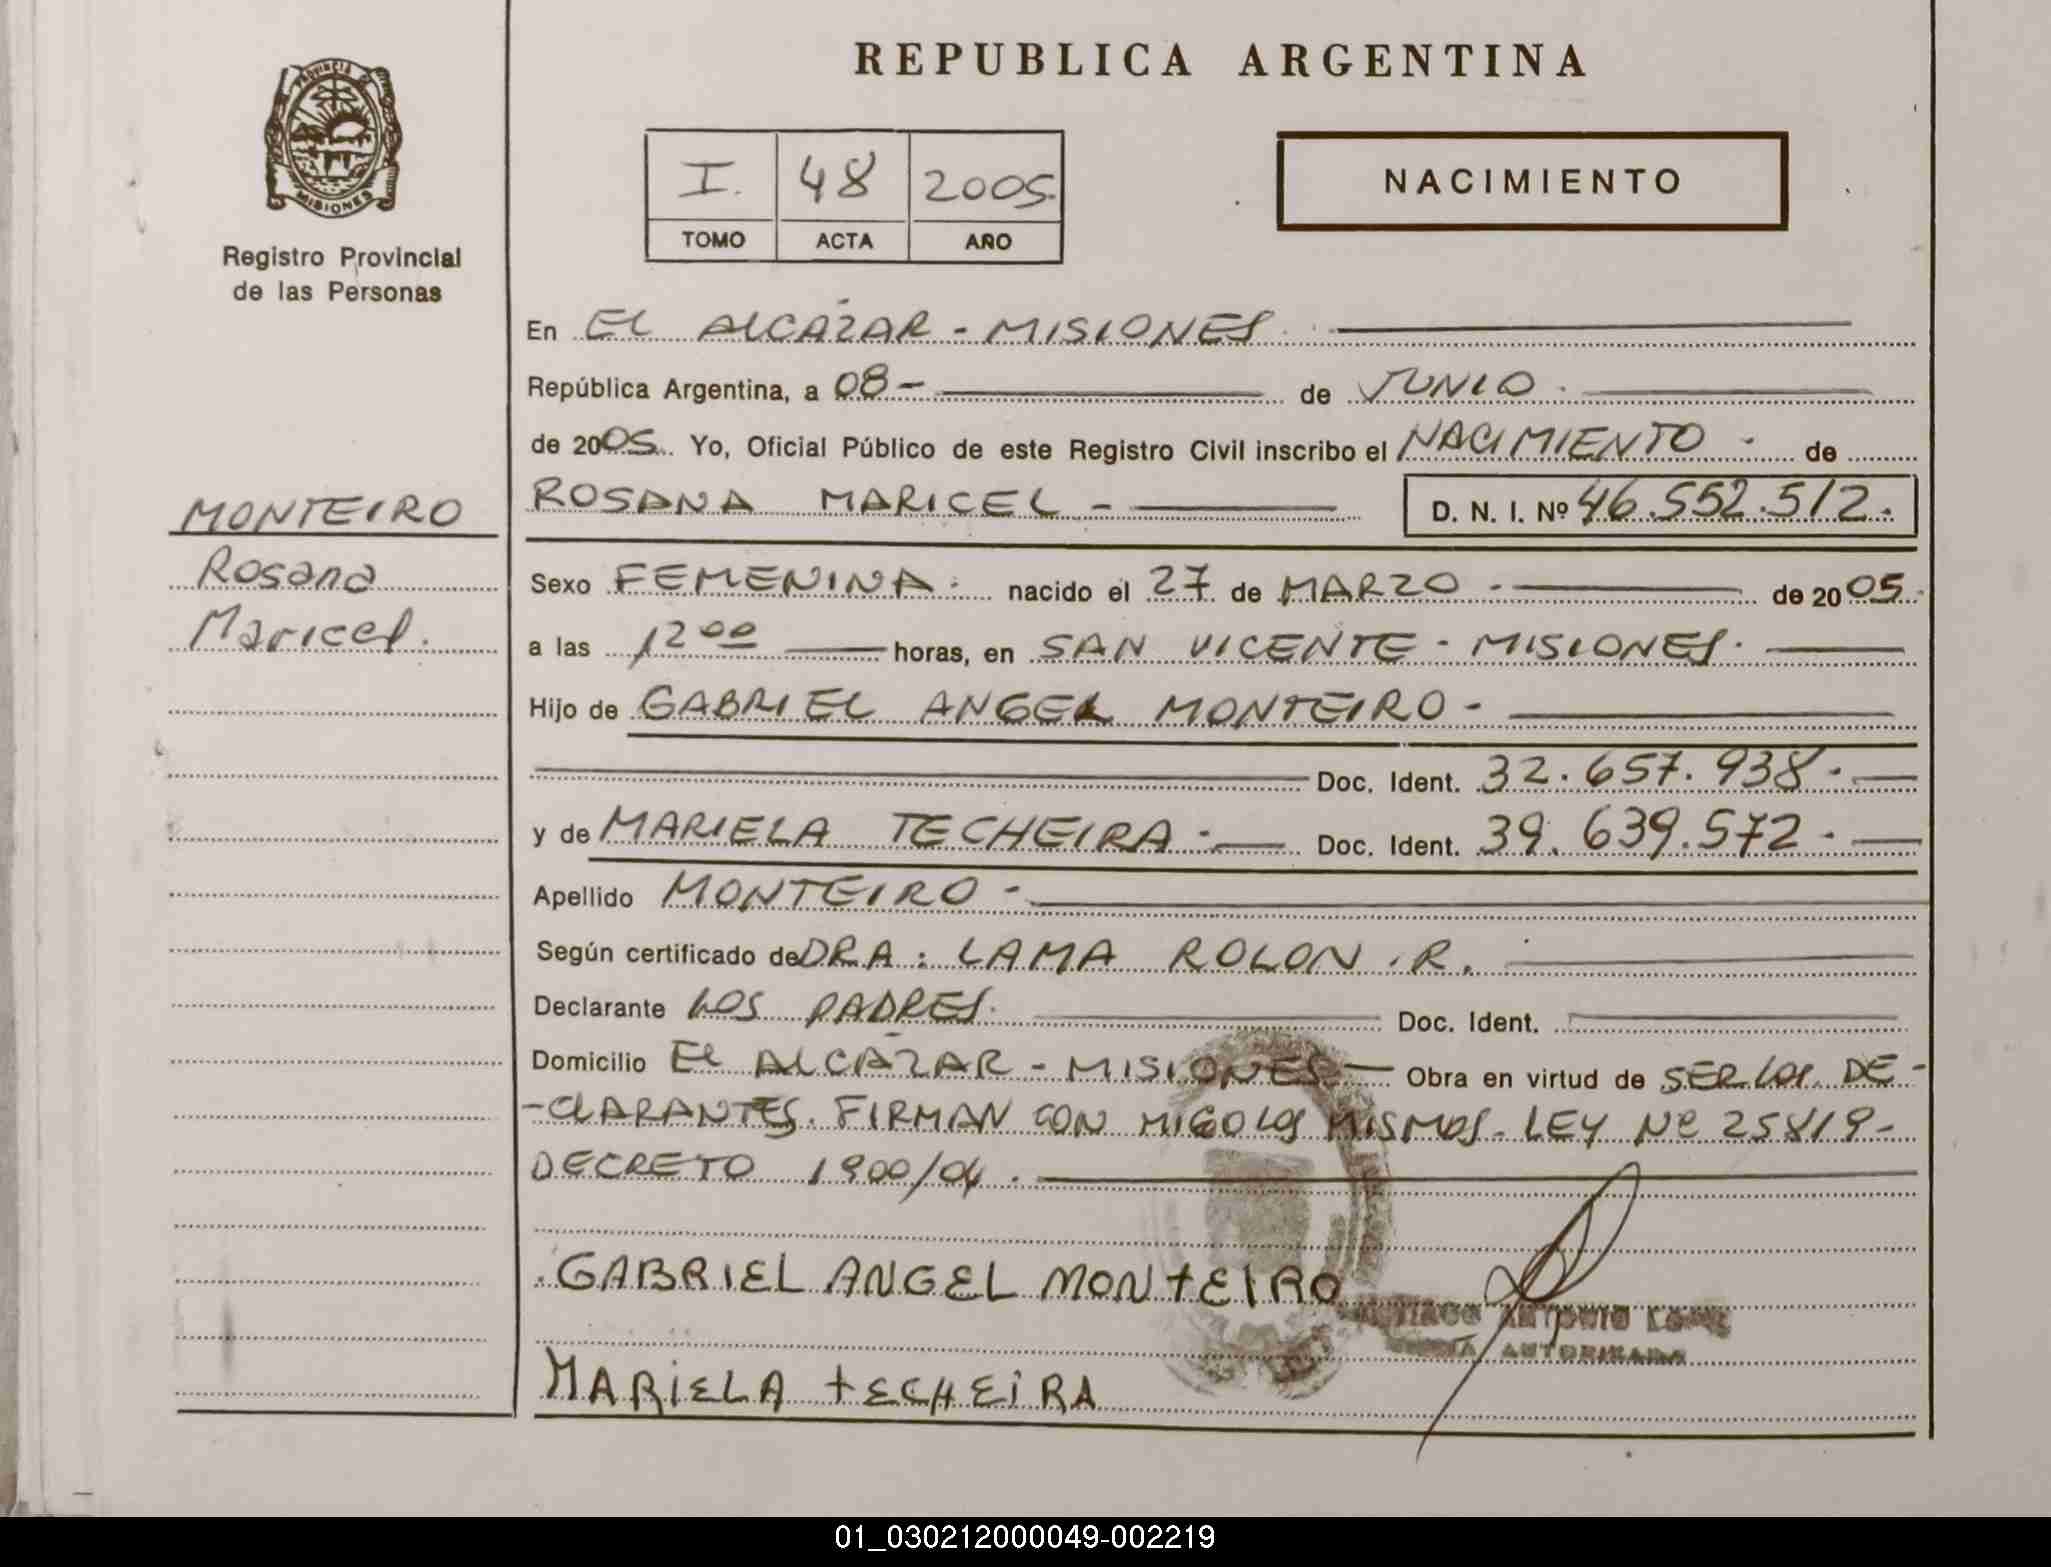 REPUBLICA ARGENTINA
PROVINCIA DE
MISIONES
Registro Provincial
de las Personas
I. 48 2005.
TOMO ACTA AÑO
NACIMIENTO
En EL ALCÁZAR - MISIONES
República Argentina, a 08- de JUNIO.
de 2005. Yo, Oficial Público de este Registro Civil inscribo el NACIMIENTO - de
ROSANA MARICEL - D. N. I. Nº 46.552.512.
MONTEIRO
Rosana
Maricel.
Sexo FEMENINA. nacido el 27 de MARZO - de 2005.
a las 12 00 horas, en SAN VICENTE - MISIONES.
Hijo de GABRIEL ANGEL MONTEIRO -
Doc. Ident. 32.657.938.
y de MARIELA TECHEIRA - Doc. Ident. 39.639.572.
Apellido MONTEIRO -
Según certificado de DRA: LAMA ROLON .R.
Declarante LOS PADRES. Doc. Ident.
Domicilio EL ALCÁZAR - MISIONES - Obra en virtud de SER LOS DE-
-CLARANTES. FIRMAN CON MIGO LOS MISMOS - LEY Nº 25819-
DECRETO 1900/04.
GABRIEL ANGEL MONTEIRO
ANTONIO
AUTORIZADA
MARIELA TECHEIRA
01_030212000049-002219